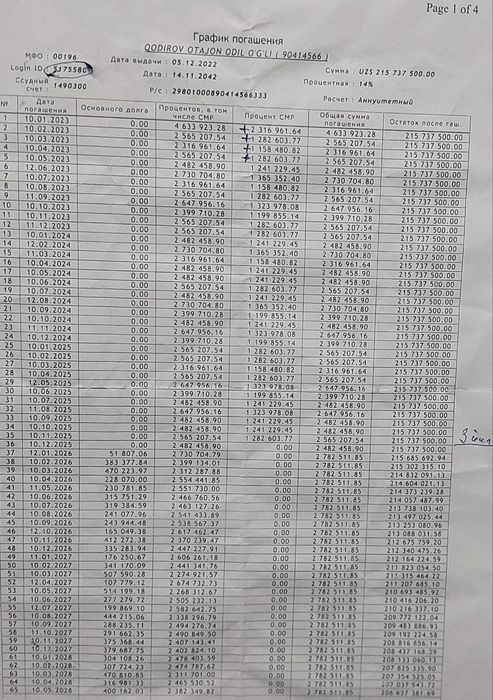 Page 1 of 4
График погашения
QODIROV OTAJON ODIL O'G'LI ( 90414566 )
МФО : 00196 Дата выдачи : 05.12.2022
Login ID : 5175580 Дата : 14.11.2042 Сумма : UZS 215 737 500.00
Ссудный счет : 1490300 Р/с : 29801000890414566333 Процентная : 14%
Расчет : Аннуитетный
№ Дата погашения Основного долга Процентов, в том числе CMP Процент CMP Общая сумма погашения Остаток после гаш.
1 10.01.2023 0.00 4 633 923.28 2 316 961.64 4 633 923.28 215 737 500.00
2 10.02.2023 0.00 2 565 207.54 1 282 603.77 2 565 207.54 215 737 500.00
3 10.03.2023 0.00 2 316 961.64 1 158 480.82 2 316 961.64 215 737 500.00
4 10.04.2023 0.00 2 565 207.54 1 282 603.77 2 565 207.54 215 737 500.00
5 10.05.2023 0.00 2 482 458.90 1 241 229.45 2 482 458.90 215 737 500.00
6 12.06.2023 0.00 2 730 704.80 1 365 352.40 2 730 704.80 215 737 500.00
7 10.07.2023 0.00 2 316 961.64 1 158 480.82 2 316 961.64 215 737 500.00
8 10.08.2023 0.00 2 565 207.54 1 282 603.77 2 565 207.54 215 737 500.00
9 11.09.2023 0.00 2 647 956.16 1 323 978.08 2 647 956.16 215 737 500.00
10 10.10.2023 0.00 2 399 710.28 1 199 855.14 2 399 710.28 215 737 500.00
11 10.11.2023 0.00 2 565 207.54 1 282 603.77 2 565 207.54 215 737 500.00
12 11.12.2023 0.00
14 12.02.2024 0.00 2 730 704.80 1 365 352.40 2 730 704.80 215 737 500.00
15 11.03.2024 0.00 2 316 961.64 1 158 480.82 2 316 961.64 215 737 500.00
16 10.04.2024 0.00 2 482 458.90 1 241 229.45 2 482 458.90 215 737 500.00
17 10.05.2024 0.00 2 482 458.90 1 241 229.45 2 482 458.90 215 737 500.00
18 10.06.2024 0.00 2 565 207.54 1 282 603.77 2 565 207.54 215 737 500.00
19 10.07.2024 0.00 2 482 458.90 1 241 229.45 2 482 458.90 215 737 500.00
20 12.08.2024 0.00 2 730 704.80 1 365 352.40 2 730 704.80 215 737 500.00
21 10.09.2024 0.00 2 399 710.28 1 199 855.14 2 399 710.28 215 737 500.00
22 10.10.2024 0.00 2 482 458.90 1 241 229.45 2 482 458.90 215 737 500.00
23 11.11.2024 0.00 2 647 956.16 1 323 978.08 2 647 956.16 215 737 500.00
24 10.12.2024 0.00 2 399 710.28 1 199 855.14 2 399 710.28 215 737 500.00
25 10.01.2025 0.00 2 565 207.54 1 282 603.77 2 565 207.54 215 737 500.00
26 10.02.2025 0.00 2 565 207.54 1 282 603.77 2 565 207.54 215 737 500.00
27 10.03.2025 0.00 2 316 961.64 1 158 480.82 2 316 961.64 215 737 500.00
28 10.04.2025 0.00
29 12.05.2025 0.00 2 647 956.16 1 323 978.08 2 647 956.16 215 737 500.00
30 10.06.2025 0.00 2 399 710.28 1 199 855.14 2 399 710.28 215 737 500.00
31 10.07.2025 0.00 2 482 458.90 1 241 229.45 2 482 458.90 215 737 500.00
32 11.08.2025 0.00 2 647 956.16 1 323 978.08 2 647 956.16 215 737 500.00
33 10.09.2025 0.00 2 482 458.90 1 241 229.45 2 482 458.90 215 737 500.00
34 10.10.2025 0.00
35 10.11.2025 0.00 2 565 207.54 1 282 603.77 2 565 207.54 215 737 500.00
36 10.12.2025 0.00 2 482 458.90 2 482 458.90 215 737 500.00
37 12.01.2026 51 807.06 2 730 704.79 0.00 2 782 511.85 215 685 692.94
38 10.02.2026 383 377.84 2 399 134.01 0.00 2 782 511.85 215 302 315.10
39 10.03.2026 470 223.97 2 312 287.88 0.00 2 782 511.85 214 832 091.13
40 10.04.2026 228 070.00 2 554 441.85 0.00 2 782 511.85 214 604 021.13
41 11.05.2026 230 781.85 2 551 730.00 0.00 2 782 511.85 214 373 239.28
42 10.06.2026 315 751.29 2 466 760.56 0.00 2 782 511.85 214 057 487.99
43 10.07.2026 319 384.59 2 463 127.26 0.00 2 782 511.85 213 738 103.40
44 10.08.2026 241 077.96 2 541 433.89 0.00 2 782 511.85 213 497 025.44
45 10.09.2026 243 944.48 2 538 567.37 0.00 2 782 511.85 213 253 080.96
46 12.10.2026 165 049.38 2 617 462.47 0.00 2 782 511.85 213 088 031.58
47 10.11.2026 412 272.38 2 370 239.47 0.00 2 782 511.85 212 675 759.20
48 10.12.2026 335 283.94 2 447 227.91 0.00 2 782 511.85 212 340 475.26
49 11.01.2027 176 250.67 2 606 261.18 0.00 2 782 511.85 212 164 224.59
50 10.02.2027 341 170.09 2 441 341.76 0.00 2 782 511.85 211 823 054.50
51 10.03.2027 507 590.28 2 274 921.57 0.00 2 782 511.85 211 315 464.22
52 12.04.2027 107 779.12 2 674 732.73 0.00 2 782 511.85 211 207 685.10
53 10.05.2027 514 199.18 2 268 312.67 0.00 2 782 511.85 210 693 485.92
54 10.06.2027 277 279.72 2 505 232.13 0.00 2 782 511.85 210 416 206.20
55 12.07.2027 199 869.10 2 582 642.75 0.00 2 782 511.85 210 216 337.10
56 10.08.2027 444 215.06 2 338 296.79 0.00 2 782 511.85 209 772 122.04
57 10.09.2027 288 235.11 2 494 276.74 0.00 2 782 511.85 209 483 886.93
58 11.10.2027 291 662.35 2 490 849.50 0.00 2 782 511.85 209 192 224.58
59 10.11.2027 375 368.44 2 407 143.41 0.00 2 782 511.85 208 816 856.14
60 10.12.2027 379 687.75 2 402 824.10 0.00 2 782 511.85 208 437 168.39
61 10.01.2028 304 108.26 2 478 403.59 0.00 2 782 511.85 208 133 060.13
62 10.02.2028 307 724.23 2 474 787.62 0.00 2 782 511.85 207 825 335.90
63 10.03.2028 470 810.85 2 311 701.00 0.00 2 782 511.85 207 354 525.05
64 10.04.2028 316 981.33 2 465 530.52 0.00 2 782 511.85 207 037 543.72
10.05.2028 400 162.03 2 382 349.82 0.00 2 782 511.85 206 637 381.69